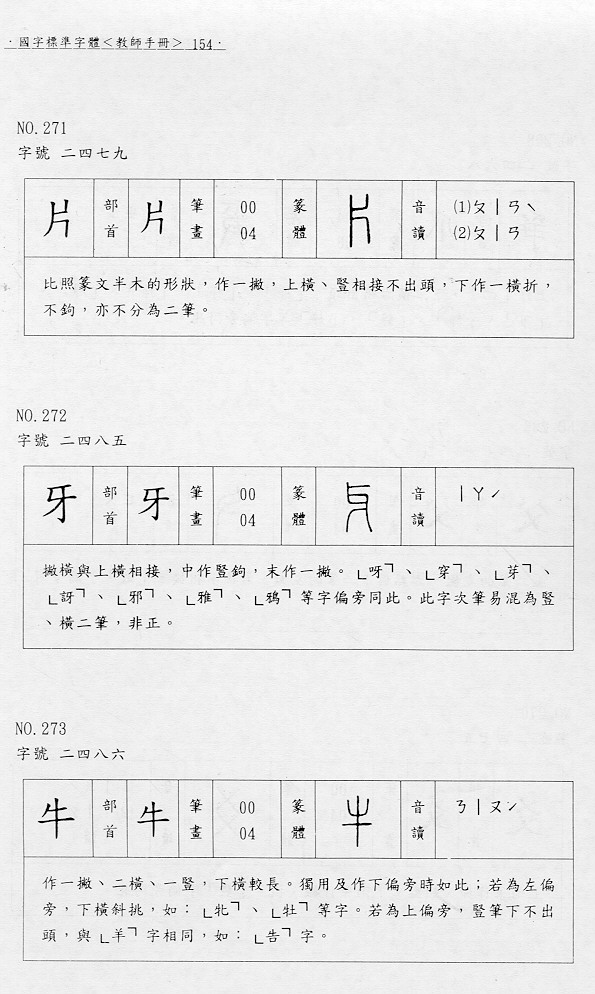 ·國字標準字體＜教師手冊＞ 154·
NO.271
字號 二四七九
片 部首 片 筆畫 00 04 篆體 音讀 ⑴ㄆㄧㄢˋ ⑵ㄆㄧㄢ
比照篆文半木的形狀，作一撇，上橫、豎相接不出頭，下作一橫折，
不鉤，亦不分為二筆。
NO.272
字號 二四八五
牙 部首 牙 筆畫 00 04 篆體 音讀 ㄧㄚˊ
撇橫與上橫相接，中作豎鉤，末作一撇。「呀」、「穿」、「芽」、
「訝」、「邪」、「雅」、「鴉」等字偏旁同此。此字次筆易混為豎
、橫二筆，非正。
NO.273
字號 二四八六
牛 部首 牛 筆畫 00 04 篆體 音讀 ㄋㄧㄡˊ
作一撇、二橫、一豎，下橫較長。獨用及作下偏旁時如此；若為左偏
旁，下橫斜挑，如：「牝」、「牡」等字。若為上偏旁，豎筆下不出
頭，與「羊」字相同，如：「告」字。